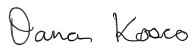 Danas Kosco